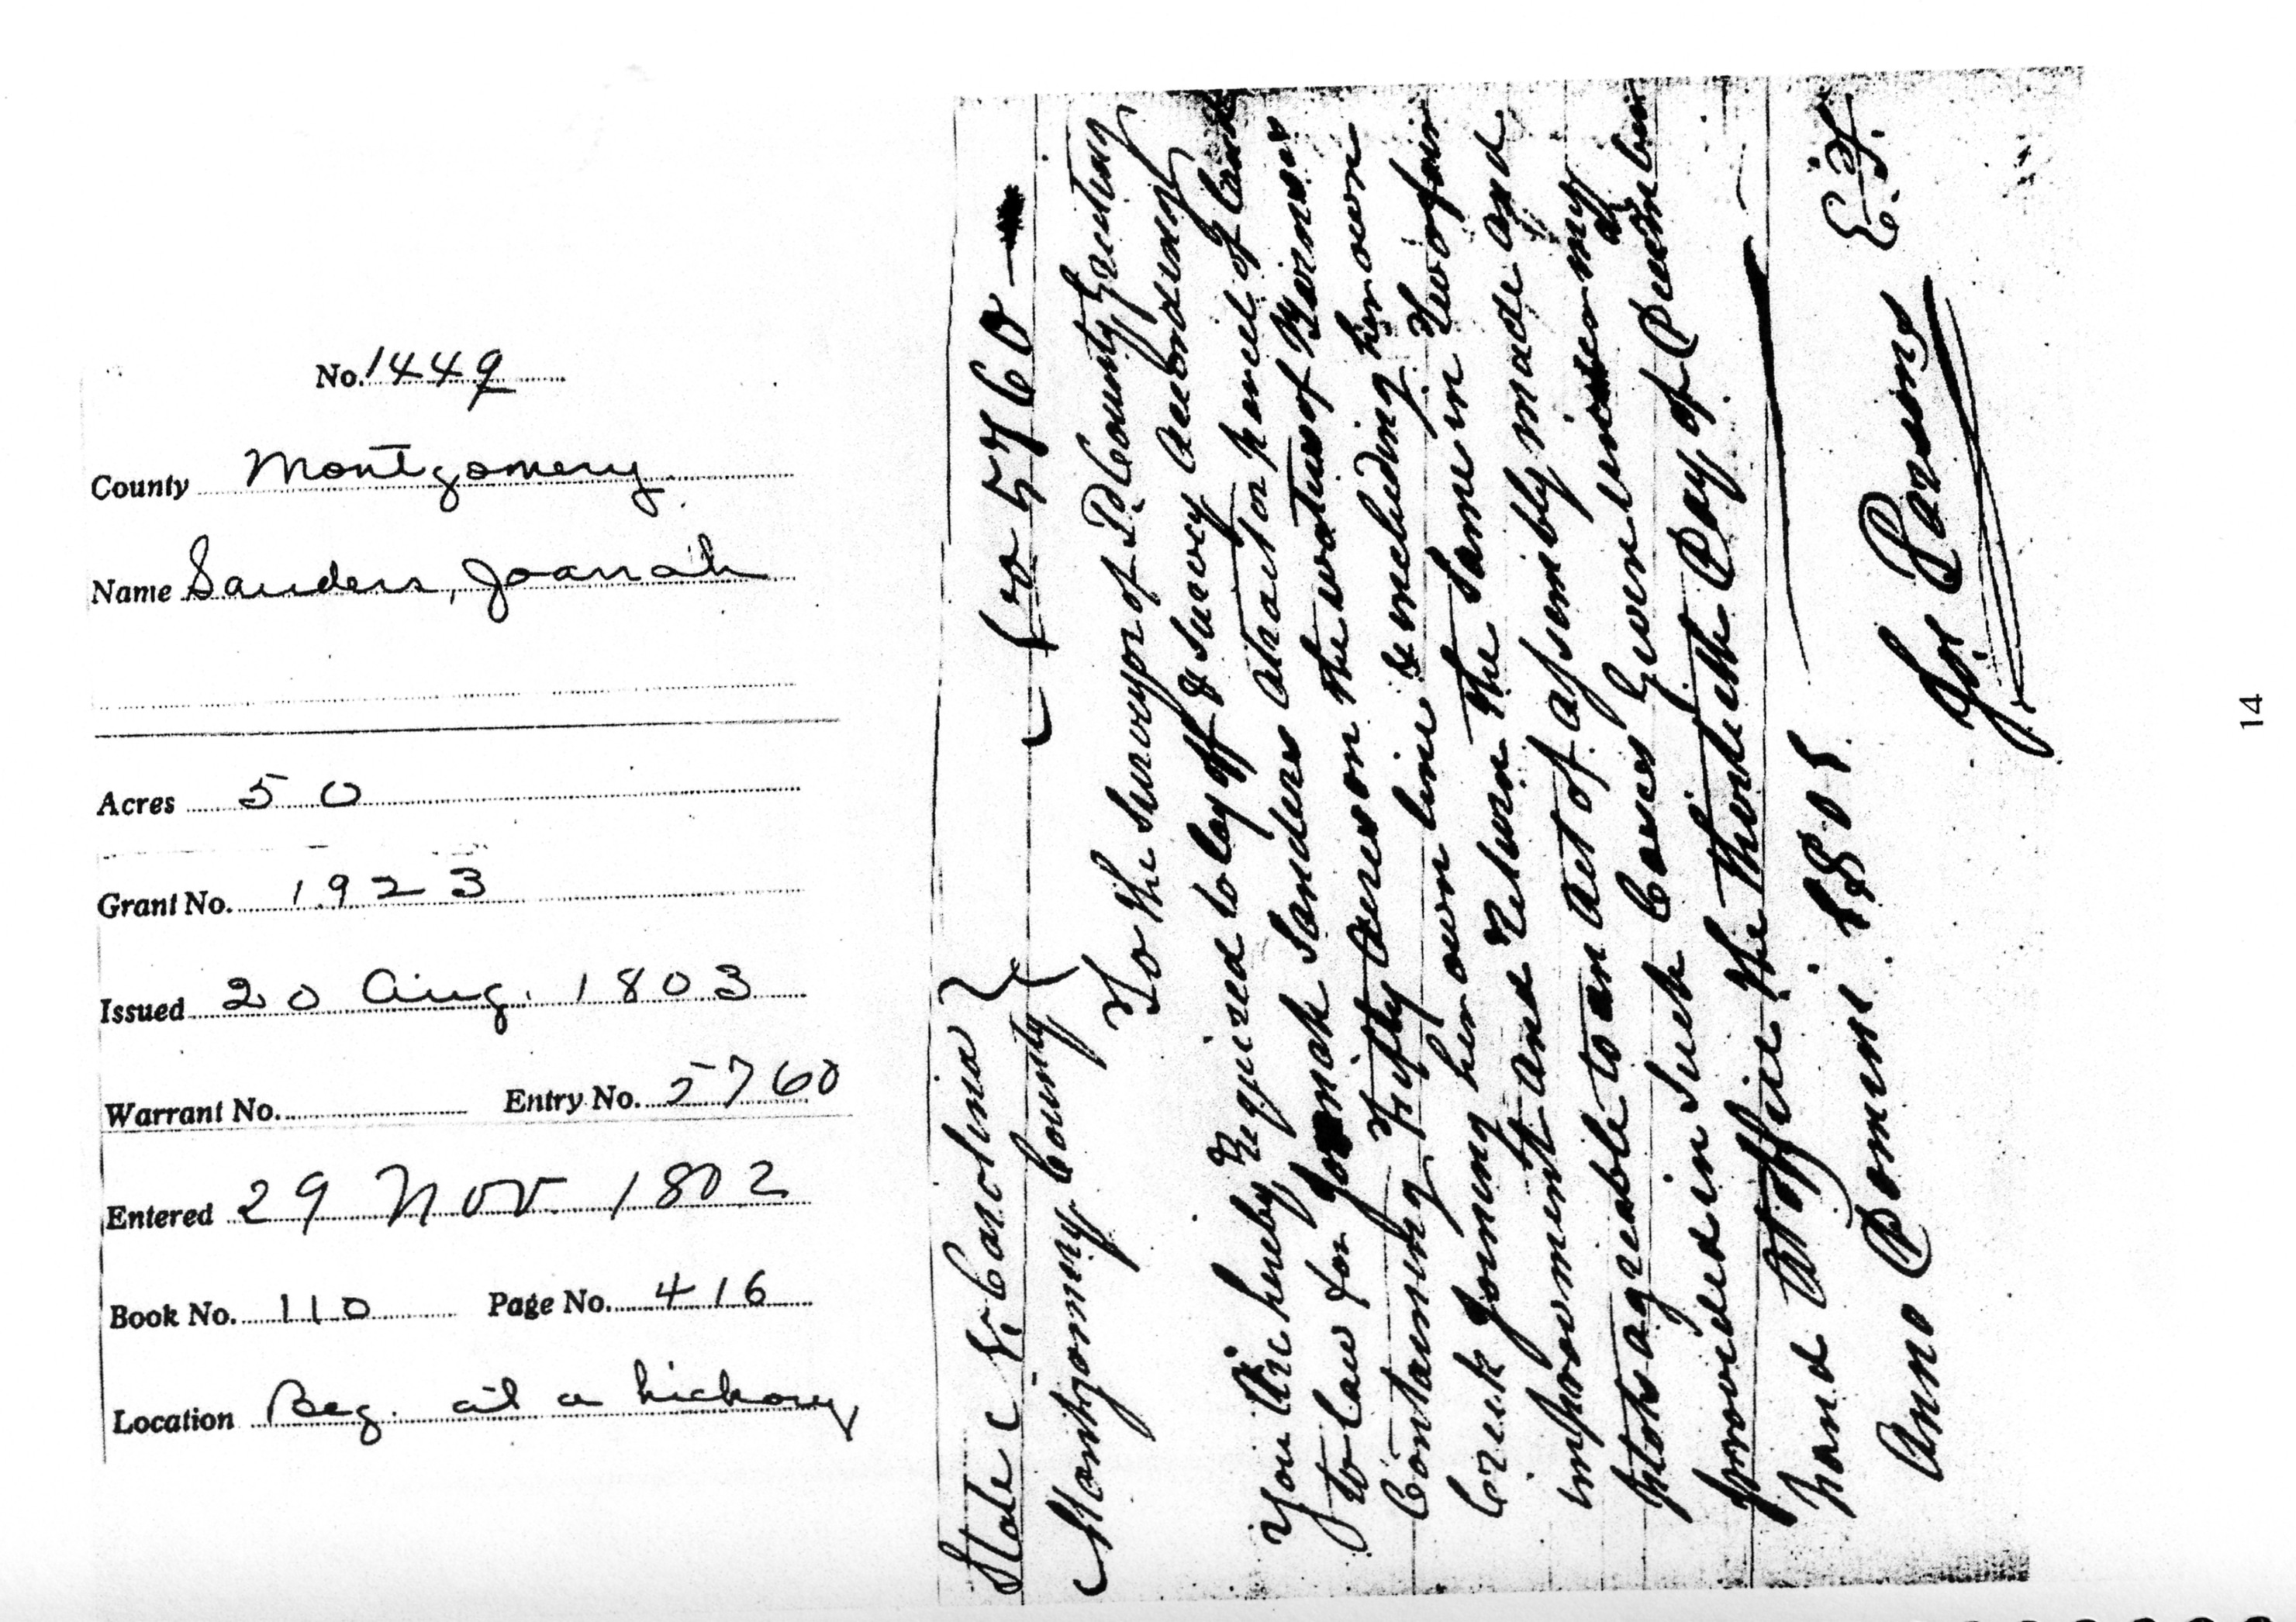 No. 1449
County Montgomery
Name Sanders, Joanah
Acres 50
Grant No. 1923
Issued 20 Aug. 1803
Warrant No. Entry No. 5760
Entered 29 Nov. 1802
Book No. 110 Page No. 416
Location Beg. at a hickory
State N. Carolina } No 5760
Montgomery County
To the Surveyor of Sd County Greeting
You Are hereby Required to lay off & Survey According
to law for Jonak Sanders atract or parcel of land
Containing Fifty Acres on the waters of Barnses
Creek Joining her own line & including her own
improvement And Return the Same in Two fair
plots agreable to an Act of Assembly made and
provided in Such Cases Given under my
hand At office the thirtieth Day of December
Anno Domini 1801
Js. Parsons E.T.
14